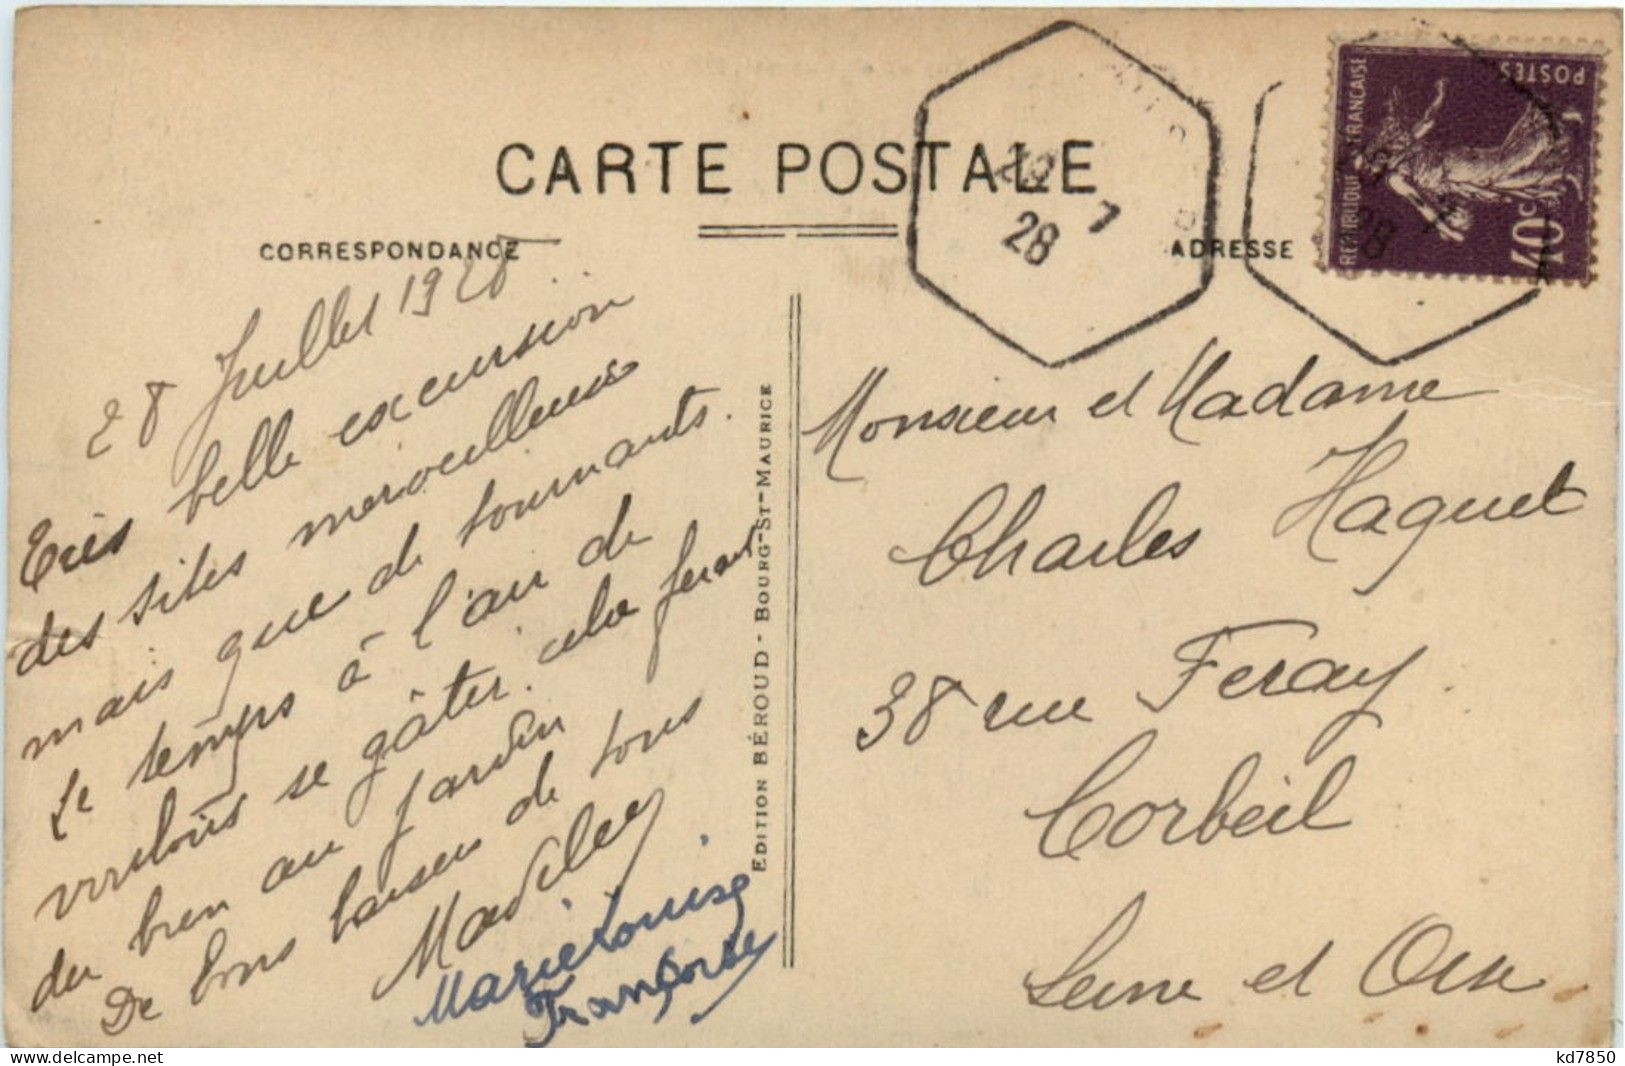 CARTE POSTALE
CORRESPONDANCE
ADRESSE
28 Juillet 1928
Très belle excursion
des sites merveilleux
mais que de tournants.
Le temps à l'air de
vouloir se gâter. cela ferait
du bien au jardin
De bons baisers de tous
Madeleine
Marie Louise
Françoise
EDITION BÉROUD - BOURG-ST-MAURICE
28 7
28
REPUBLIQUE FRANÇAISE
POSTES
40c
28
Monsieur et Madame
Charles Haquet
38 rue Feray
Corbeil
Seine et Oise
kd7850